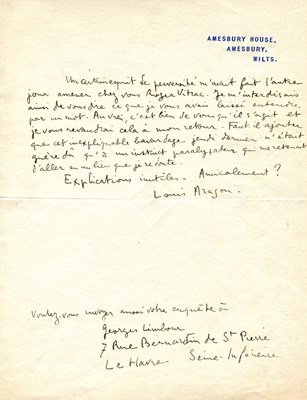 AMESBURY HOUSE,
AMESBURY,
WILTS.
Un certain esprit de perversité m'avait fait l'autre
jour amener chez vous Roger Vitrac. Je m'interdisais
ainsi de vous dire ce que je vous avais laissé entendre
par un mot. Au vrai, c'est bien de vous qu'il s'agit et
je vous revaudrai cela à mon retour. Faut-il ajouter
que cet inexplicable bavardage jeudi dernier n'était
guère dû qu'à un instinct paralysateur qui me retenait
d'aller en un lieu que je redoute.
Explications inutiles. Amicalement ?
Louis Aragon.
Voulez-vous envoyer aussi votre enquête à
Georges Limbour
7 Rue Bernardin de St Pierre
Le Havre Seine-Inférieure